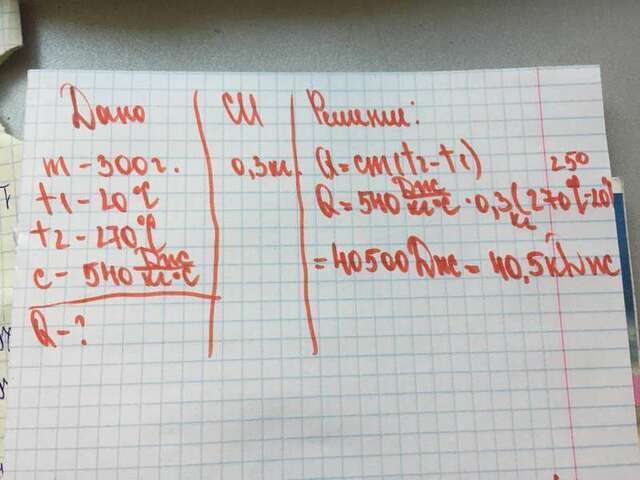 Дано
m - 300г.
t1 - 20°C
t2 - 270°C
c - 540 Дж/кг·°C
Q - ?
СИ
0,3кг.
Решение:
Q = cm(t2 - t1)
250
Q = 540 Дж/кг·°C · 0,3кг(270°C-20°
= 40500 Дж = 40,5 кДж